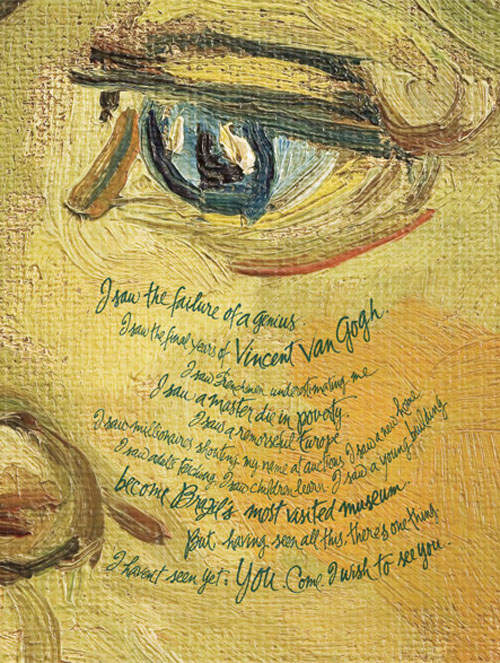 I saw the failure of a genius.
I saw the final years of Vincent van Gogh.
I saw Frenchmen underestimating me
I saw a master die in poverty
I saw a remorseful Europe
I saw millionaires shouting my name at auctions. I saw a new home
I saw adults feuding. I saw children learn. I saw a young building
become Brazil's most visited museum.
But having seen all this, there's one thing
I haven't seen yet: You. Come. I wish to see you.